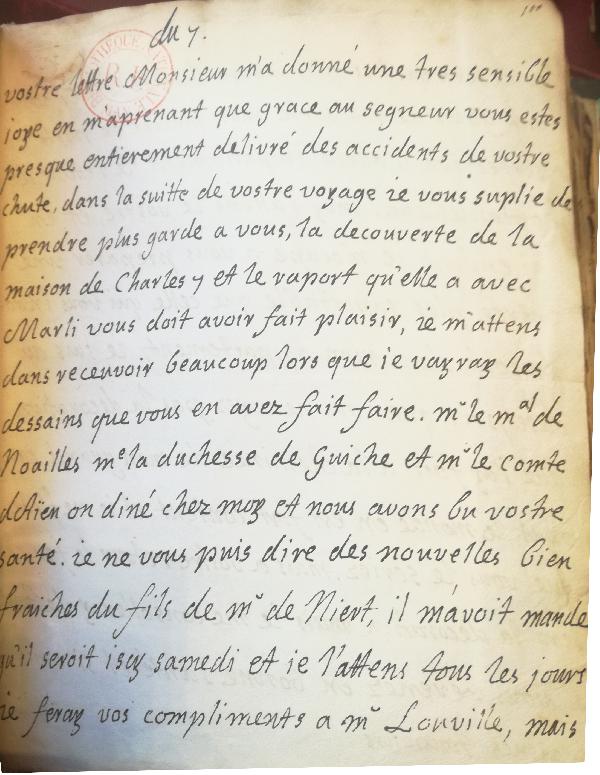 du 7.
vostre lettre Monsieur m'a donné une tres sensible
ioye en m'aprenant que grace au segneur vous estes
presque entierement delivré des accidents de vostre
chute, dans la suitte de vostre voyage ie vous suplie de
prendre plus garde a vous, la decouverte de la
maison de Charles 7 et le raport qu'elle a avec
Marli vous doit avoir fait plaisir, ie m'attens
dans recevoir beaucoup lors que ie vayray les
dessains que vous en avez fait faire. mr le mal de
Noailles me la duchesse de Guiche et mr le comte
dAïen on diné chez moy et nous avons bu vostre
santé. ie ne vous puis dire des nouvelles bien
fraiches du fils de mr de Niert, il m'avoit mandé
qu'il seroit isy samedi et ie l'attens tous les jours
ie feray vos compliments a mr Louville, mais